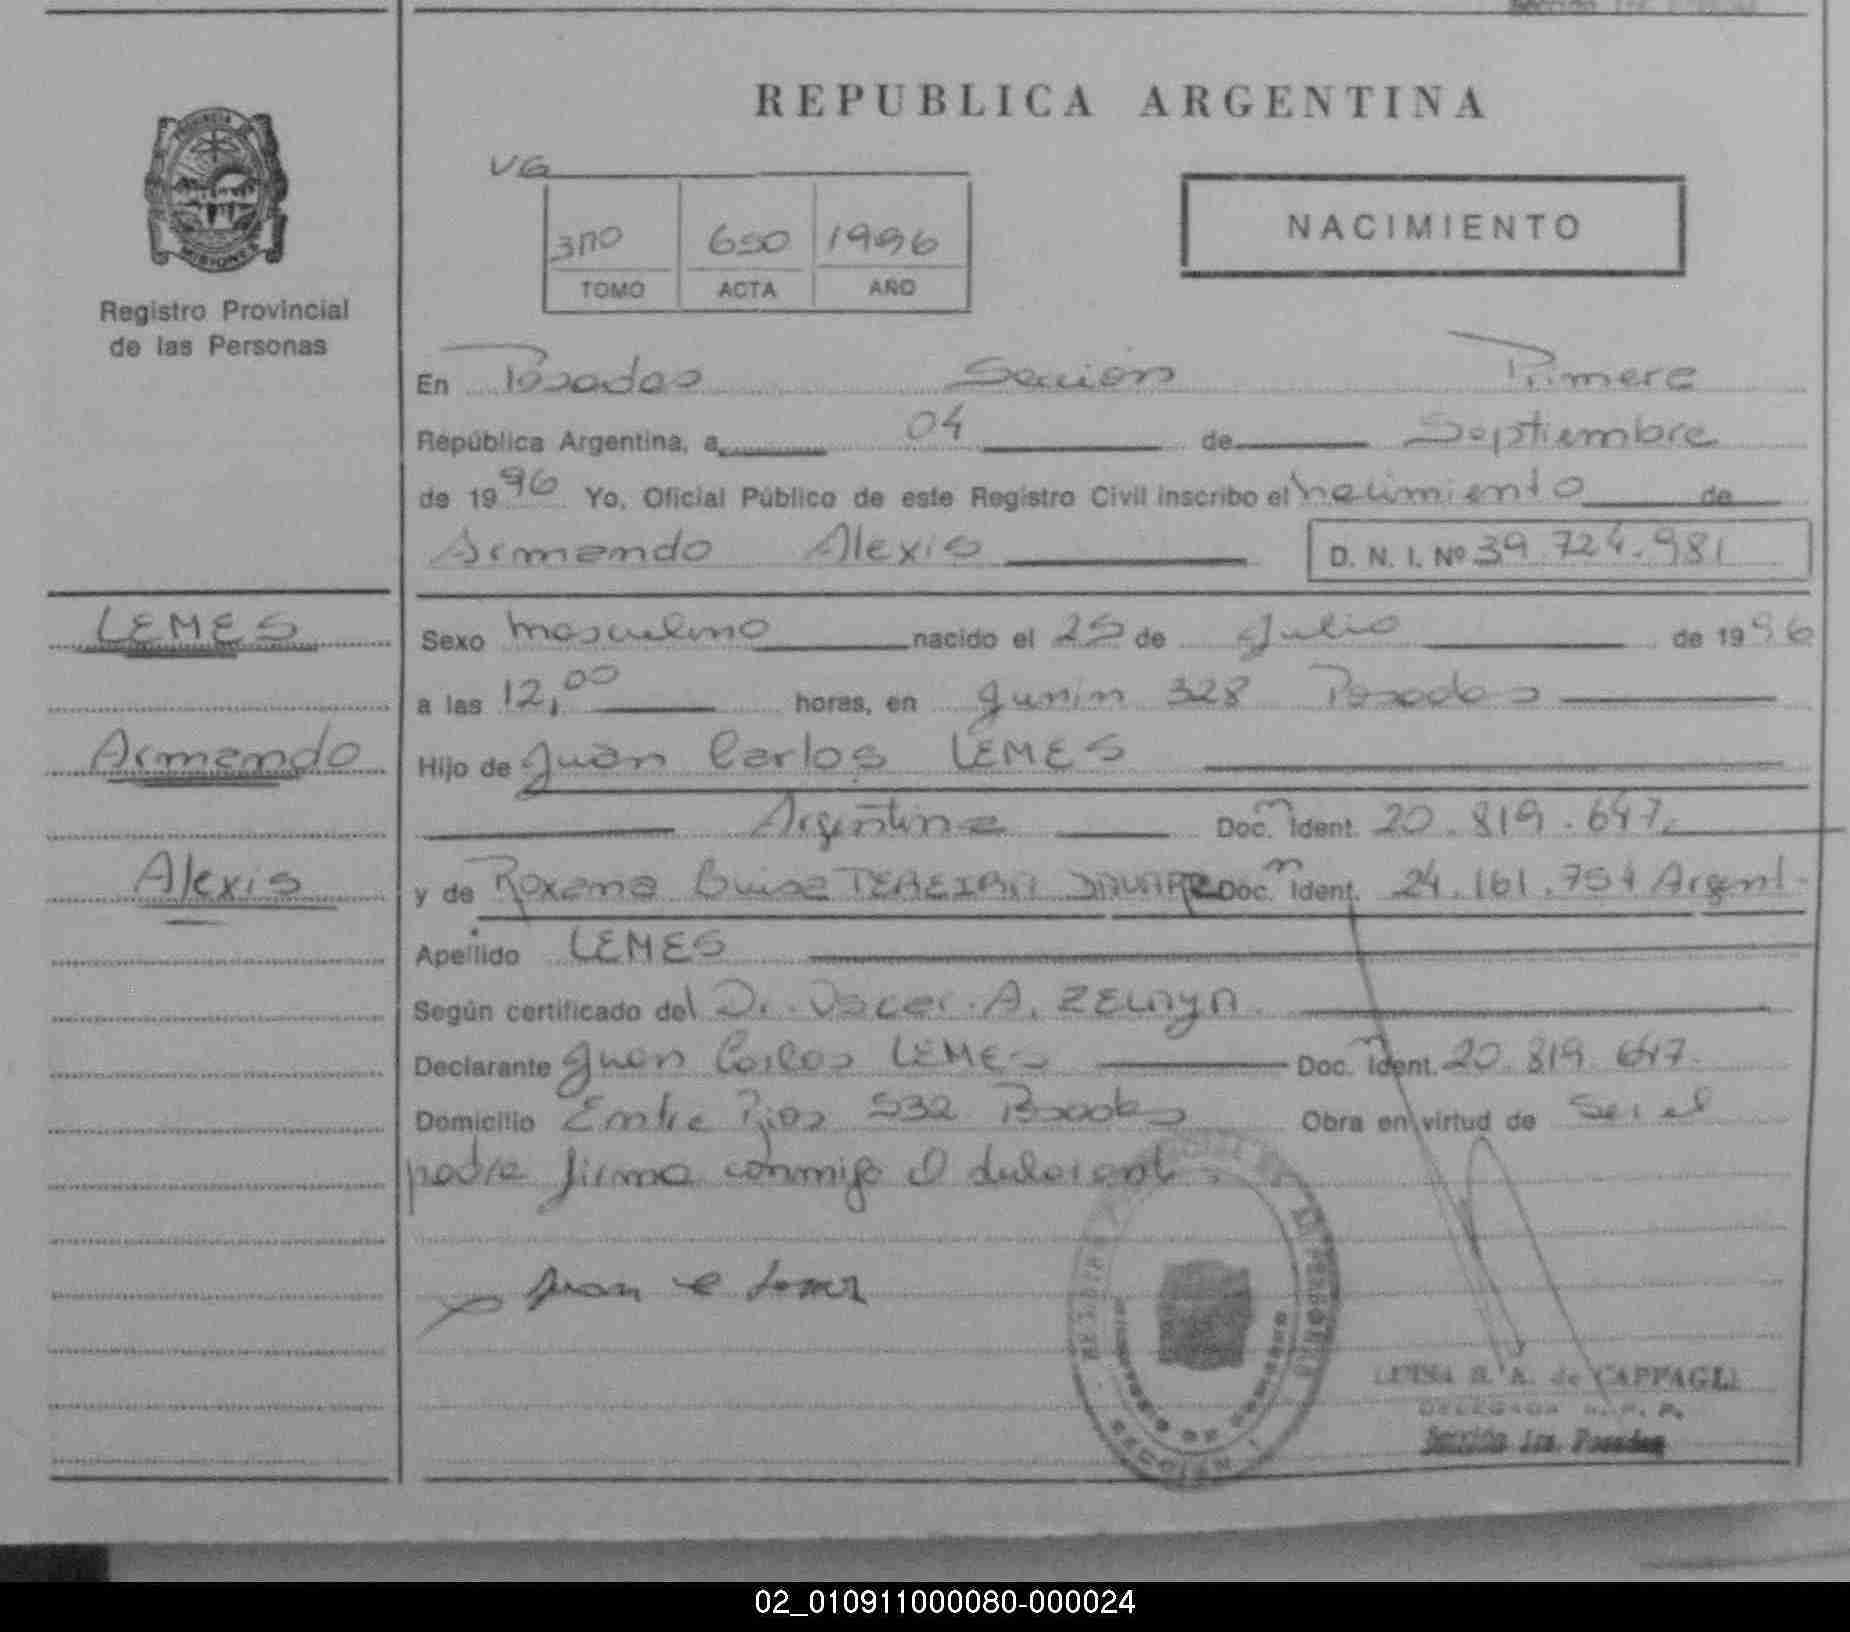 REPUBLICA ARGENTINA
PROVINCIA DE
MISIONES
Registro Provincial
de las Personas
VG
3ro 650 1996
TOMO ACTA AÑO
NACIMIENTO
En Posadas Sección Primera
República Argentina, a 04 de Septiembre
de 1996 Yo, Oficial Público de este Registro Civil inscribo el nacimiento de
Armando Alexis D. N. I. Nº 39.724.981
LEMES
Armando
Alexis
Sexo masculino nacido el 25 de Julio de 1996
a las 12,00 horas, en Junin 328 Posadas
Hijo de Juan Carlos LEMES
Argentina Doc. Ident. 20.819.647.
y de Roxana Luisa Doc. Ident. 24.161.754 Argent.
Apellido LEMES
Según certificado del Dr. Oscar A. ZELAYA
Declarante Juan Carlos LEMES Doc. Ident. 20.819.647.
Domicilio Entre Rios 532 Posadas Obra en virtud de Ser el
padre firma conmigo el
LUISA R. A. de CAPPAGLI
DELEGADA R. P. P.
Sección 1ra. Posadas
02_010911000080-000024